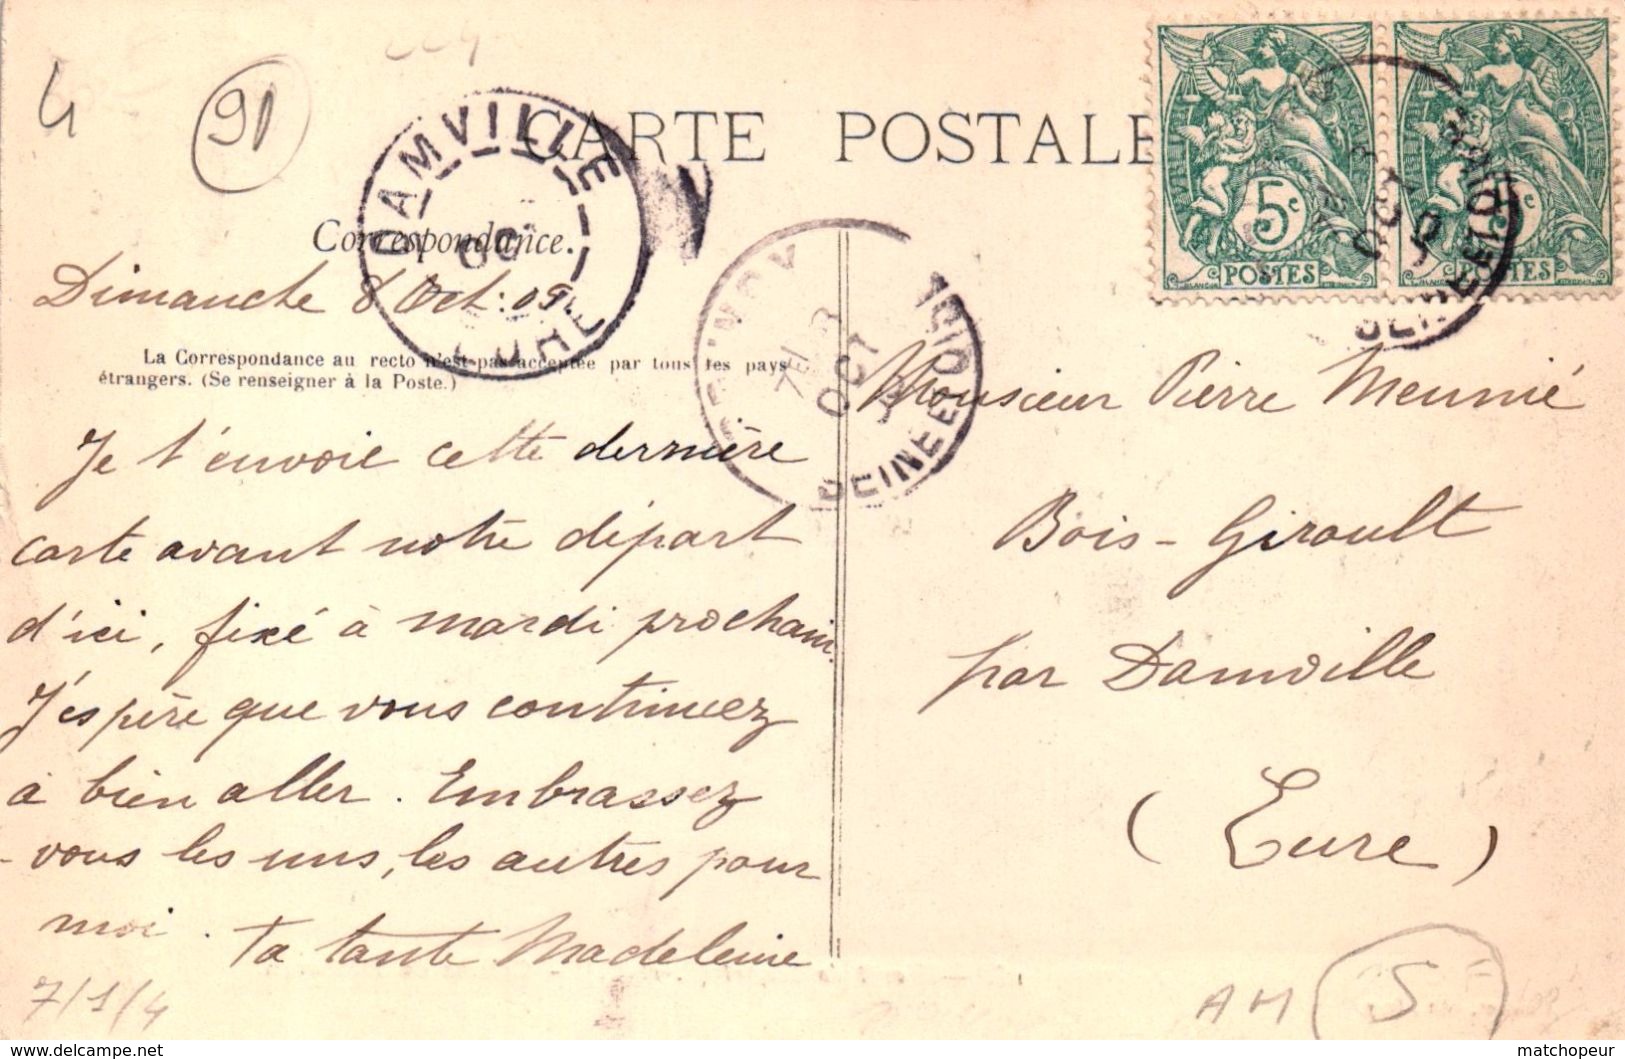 4
91
CARTE POSTALE
DAMVILLE
EURE
Correspondance.
Dimanche 8 Oct: 09.
La Correspondance au recto n'est pas acceptée par tous les pays
étrangers. (Se renseigner à la Poste.)
Je t'envoie cette dernière
carte avant notre départ
d'ici, fixé à mardi prochain.
J'espère que vous continuez
à bien aller. Embrassez
-vous les uns, les autres pour
moi. Ta tante Madeleine
7/1/4
OCT
SEINE ET OISE
5c
POSTES
POSTES
Monsieur Pierre Meunié
Bois-Giroult
par Damville
(Eure)
AM
5
matchopeur
www.delcampe.net